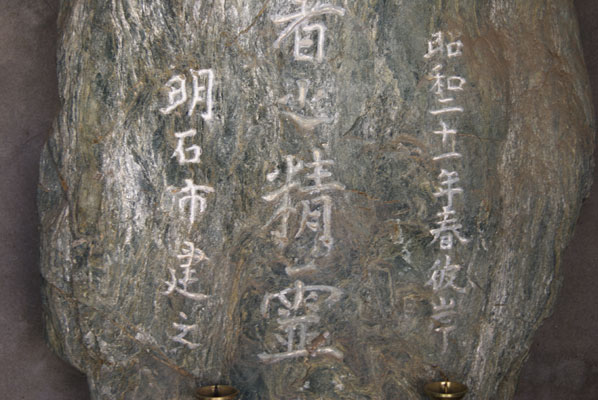 昭和二十一年春彼岸
者之精霊
明石市建之